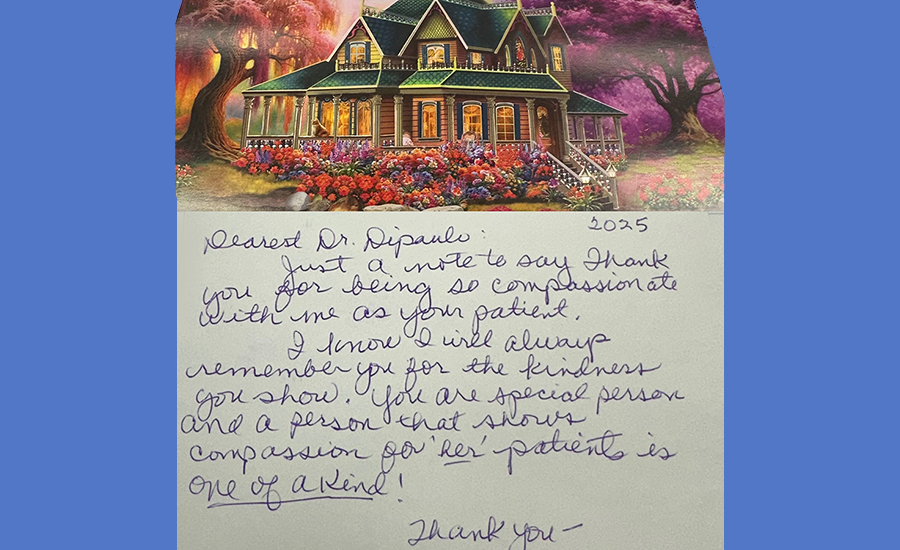 2025
Dearest Dr. Dipaulo:
Just a note to say Thank
you for being so compassionate
with me as your patient.
I know I will always
remember you for the kindness
you show. You are special person
and a person that shows
compassion for 'her' patients is
one of a kind!
Thank you-